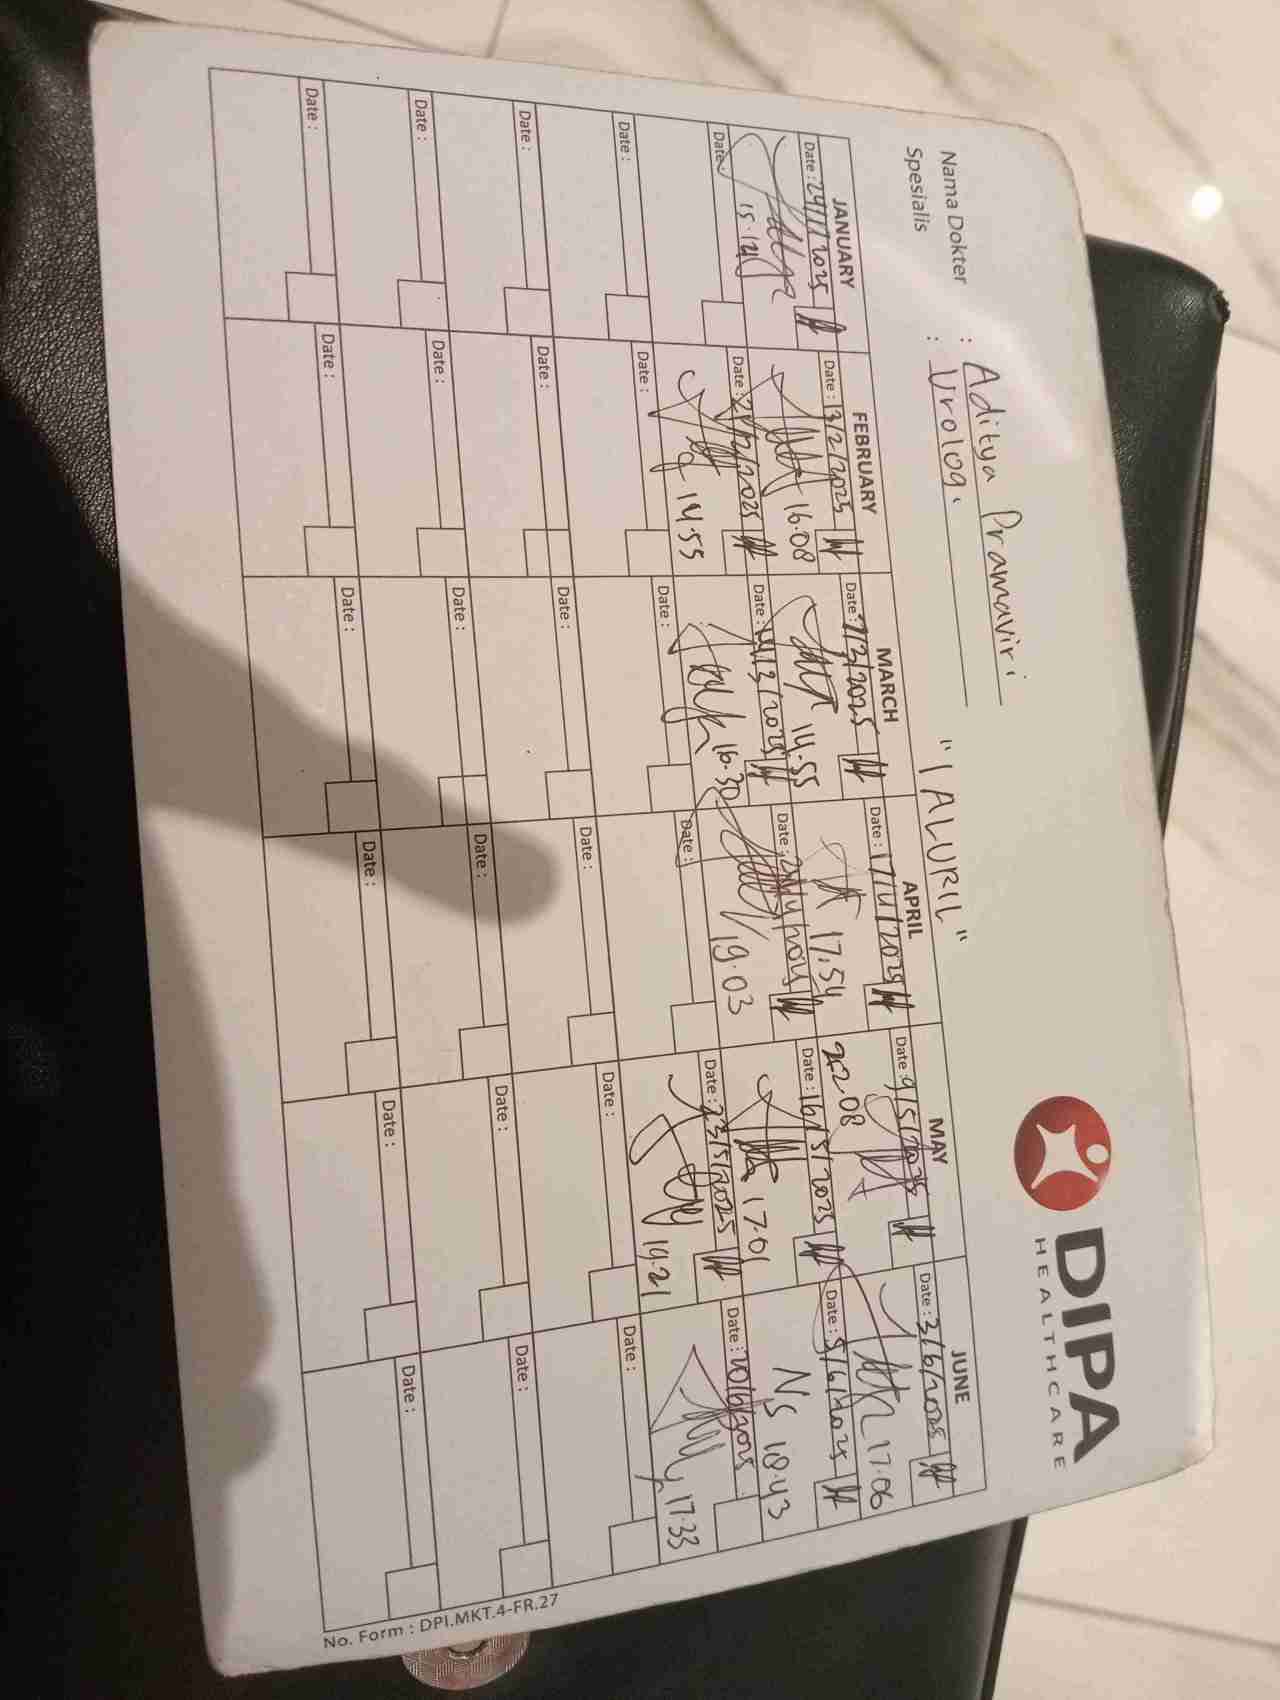 DIPA
HEALTHCARE
Nama Dokter : Aditya Pramaviri
Spesialis : Urologi
"IALURIL"
JANUARY FEBRUARY MARCH APRIL MAY JUNE
Date : Date : 13/2/2025 Date : 7/3/2025 Date : 17/4/2025 Date : 9/5/2025 Date : 3/6/2025
15.14 16.08 14.55 17.54 22.08 17.06
Date : Date : Date : Date : Date : 16/5/2025 Date : 5/6/2025
14.55 16.30 19.03 17.01 NS
Date : Date : Date : Date : 23/5/2025 Date : 20/6/2025
19.21 17.33
Date : Date : Date : Date : Date : Date :
Date : Date : Date : Date : Date : Date :
Date : Date : Date : Date : Date : Date :
No. Form : DPI.MKT.4-FR.27